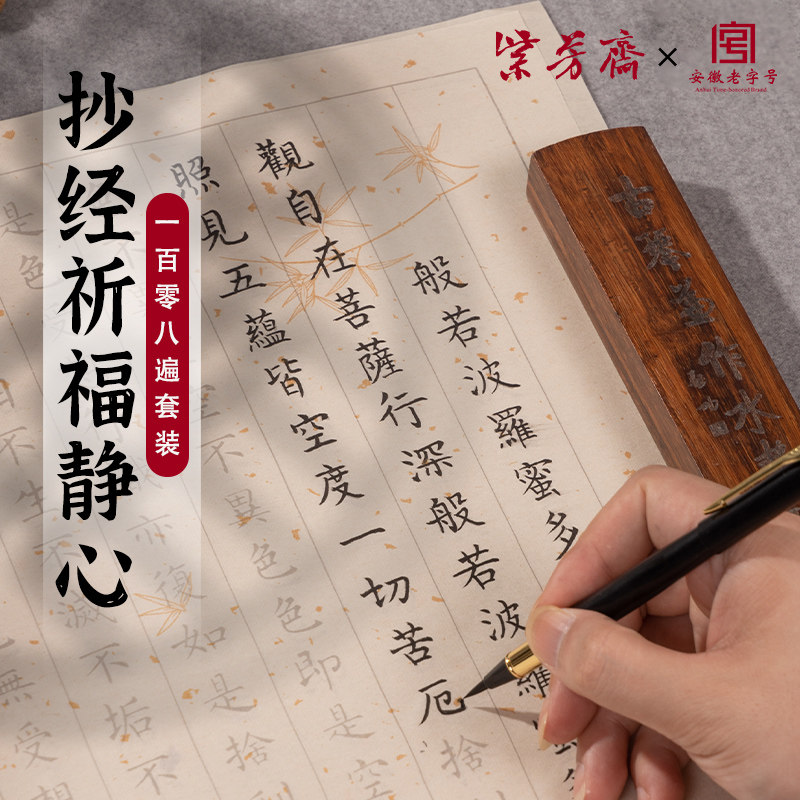 紫芳齋 × 安徽老字号
Anhui Time-honored Brand
抄经祈福静心
一百零八遍套装
般若波羅蜜多
觀自在菩薩行深般若波羅
照見五蘊皆空度一切苦厄捨
空不異色色即是
亦復如是捨
不生不滅不垢不
是色
無受想